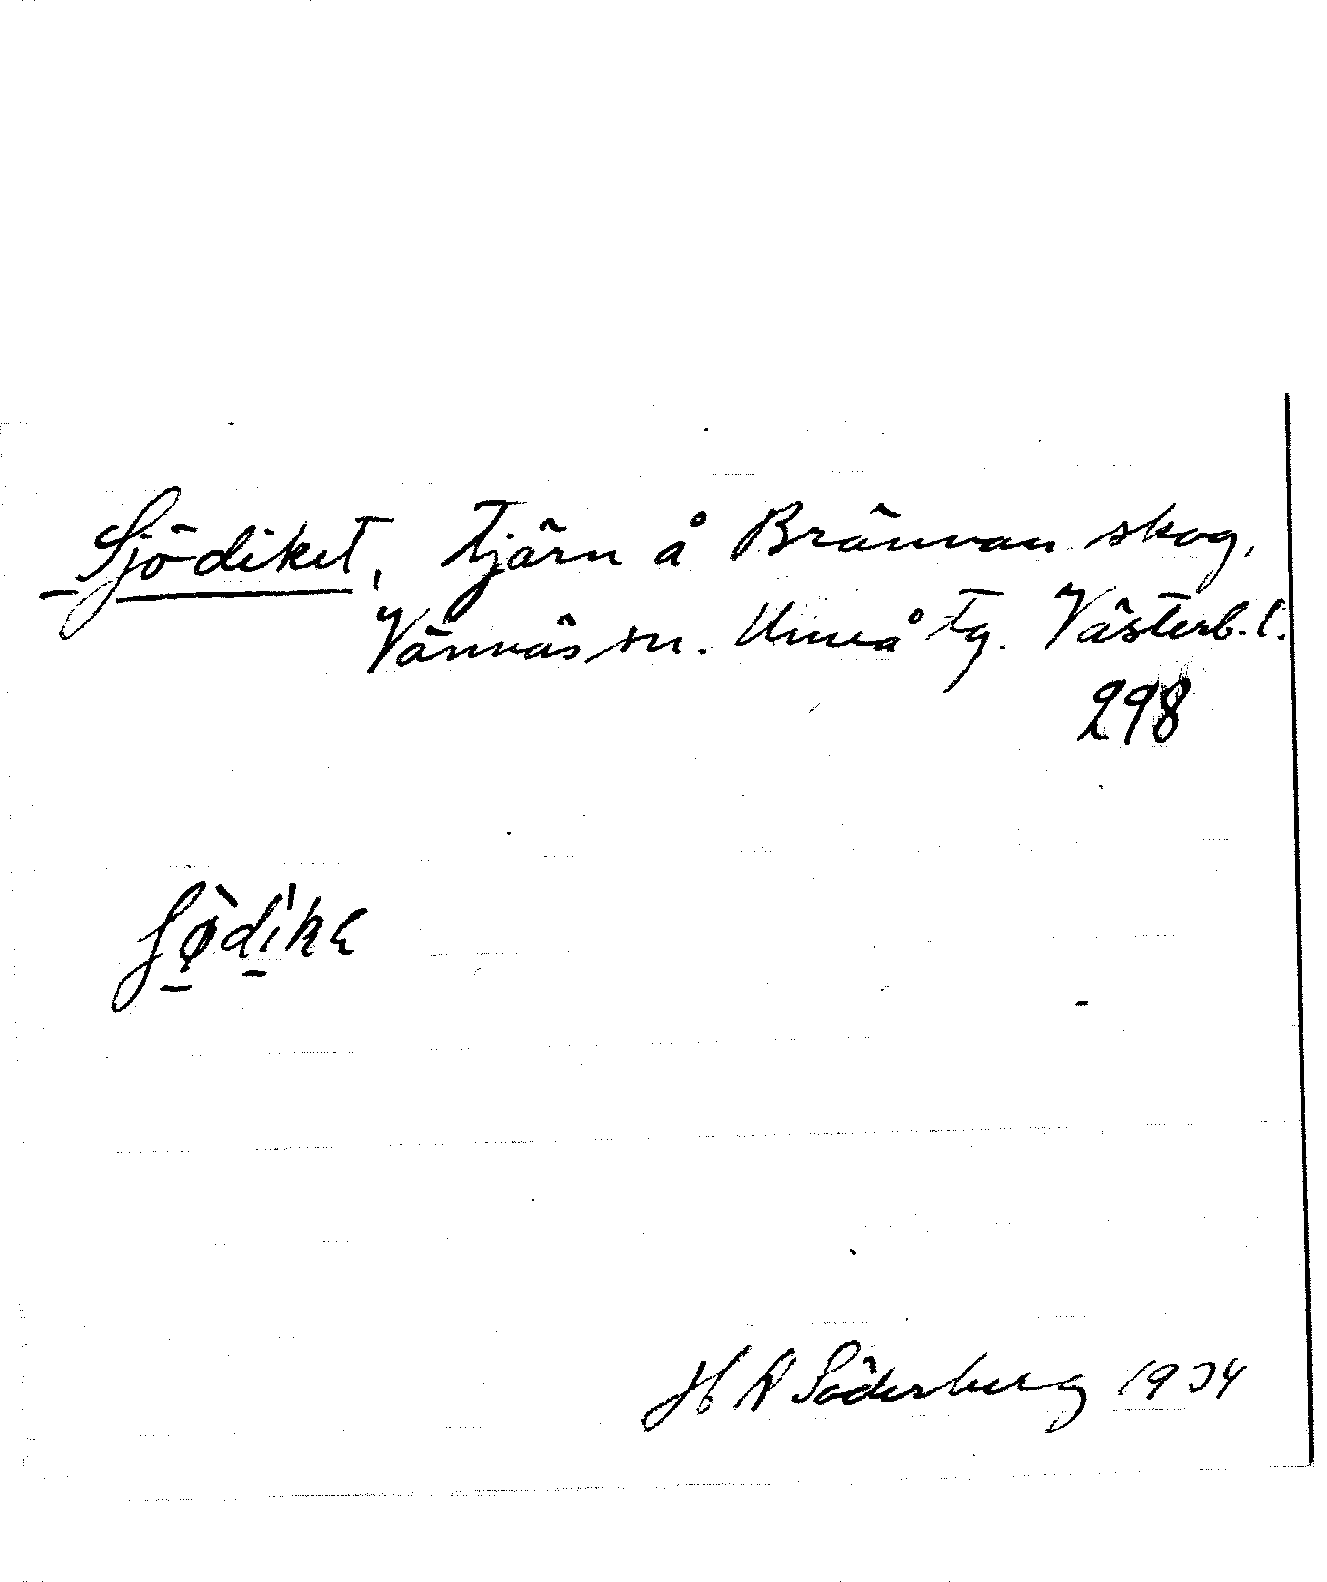 Sjödiket, tjärn å Brännan skog,
Vännäs sn. Umeå tg. Västerb. l.
298
H A Söderberg 1934